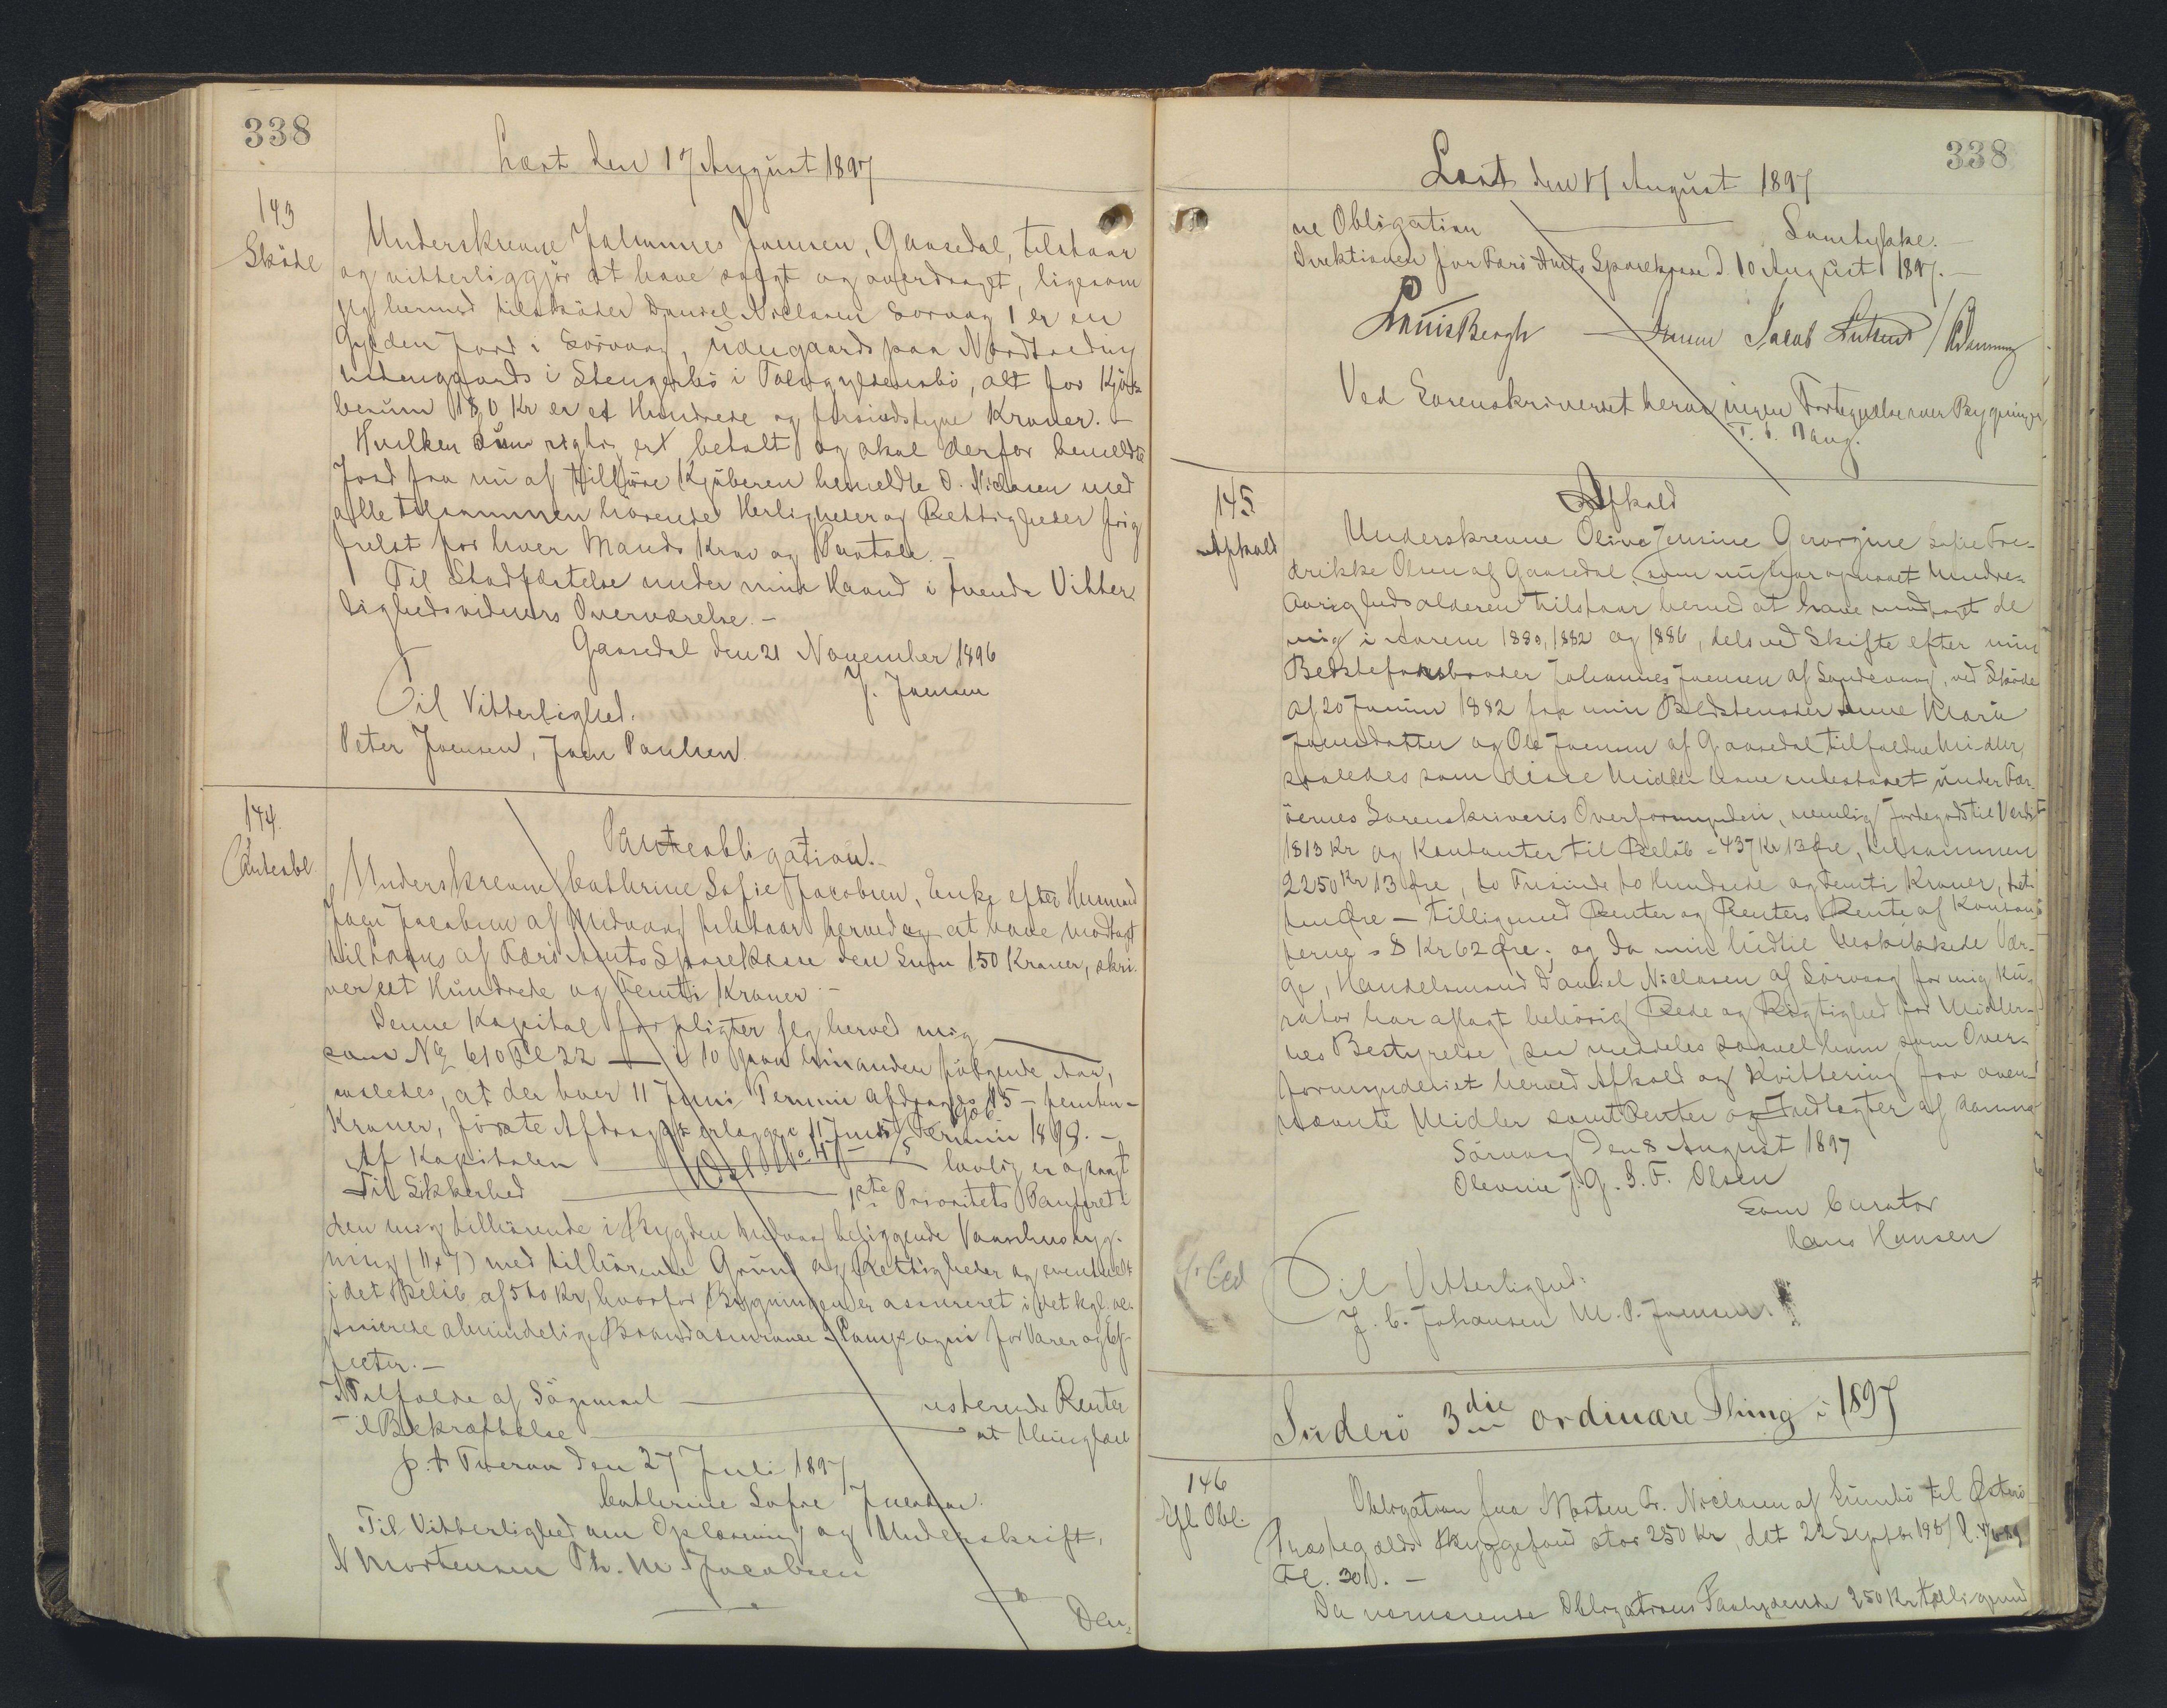 338
Læst den 17 August 1897
143
Skøde
Underskrevne Johannes Joensen, Gaasedal, tilstaar
og vitterliggjør at have solgt og overdraget, ligesom
jeg hermed tilskøder Daniel Niclasen Sørvaag 1 er en
Gylden Jord i Sørvaag, udengaards paa
udengaards i i, alt for Kjø-
besum 180 Kr er et Hundrede og firsindstyve Kroner. -
Hvilken Sum rigtig er betalt og skal derfor bemeldte
Jord fra nu af tilhøre Kjøberen bemeldte D. Niclasen med
alle tilsammen hørende Herligheder og Rettigheder fri og
frelst for hver Mands Krav og Paatale. -
Til Stadfæstelse under min Haand i tvende Vitter-
lighedsvidners Overværelse. -
Gaasedal den 21 November 1896
J. Joensen
Til Vitterlighed.
Peter Joensen, Joen Paulsen
144.
Panteobl
Panteobligation. -
Underskrevne Cathrine Sofie Jacobsen, Enke efter Husmand
Joen Jacobsen af Midvaag tilstaar herved at have modtaget
tillaans af Færø Amts Sparekasse den Sum 150 Kroner, skri-
ver et Hundrede og Femti Kroner -
Denne Kapital forpligter jeg herved mig
som No 610 22 — i 10 paa hinanden følgende Aar,
saaledes, at der hver 11 Juni Termin afdrages 15 - femten -
Kroner, første Afdrag erlægges 11 Juni Termin 1898. -
Af Kapitalen — lovlig er opsagt
Til Sikkerhed — 1ste Prioritets Panteret i
den mig tilhørende i Bygden Midvaag beliggende Vaaningsbyg-
ning (11x7) med tilhørende Grund og Rettigheder og eventuelt
i det Beløb af 500 Kr, hvorfor Bygningen er assureret i det kgl. oc-
troierede almindelige Brandassurance-Compagni for Varer og Ef-
fecter. -
I Tilfælde af Søgemaal — resterende Renter
Til Bekræftelse — at thinglæse
p. t. Tveraa den 27 Juli 1897
Cathrine Sofie Jacobsen.
Til Vitterlighed om Oplæsning og Underskrift.
N Mortensen Th. M. Jacobsen
Den-
338
Læst den 17 August 1897
ne Obligation — Samtykke. -
Direktionen for Færø Amts Sparekasse d. 10 August 1897. -
Louis Bergh — Jensen Jacob Lützen /
Ved Sorenskriveriet beror ingen Fortegnelse over Bygninger
145
Afkald
Afkald
Underskrevne Olive Jensine Georgine Sofie Fre-
derikke Olsen af Gaasedal, som nu har opnaaet Mindre-
aarighedsalderen tilstaar herved at have modtaget de
mig i Aarene 1880, 1882 og 1886, dels ved Skifte efter min
Bedstefarsbroder Johannes Joensen af Sandevaag, ved Skøde
af 20 Januar 1882 fra min Bedstemoder Anne Maria
Joensdatter og Ole Joensen af Gaasedal tilfaldne Midler,
saaledes som disse Midler have indestaaet under Fær-
øernes Sorenskriveris Overformynderi, nemlig Jordegods til Værdi
1813 Kr og Kontanter til Beløb - 437 Kr 13 Øre, tilsammen
2250 Kr 13 Øre, to Tusinde to Hundrede og Femti Kroner, tret-
ten Øre — tilligemed Renter og Renters Rente af Kontan-
terne - 8 Kr 62 Øre; og da min hidtil beskikkede Vær-
ge, Handelsmand Daniel Niclasen af Sørvaag for mig Ku-
rator har aflagt behørig Rede og Rigtighed for Midler-
nes Bestyrelse, saa meddeles saavel ham som Over-
formynderiet herved Afkald og Kvittering for oven-
nævnte Midler samt Renter og Indtægter af samme
Sørvaag den 8 August 1897
Olevine J. G. S. F. Olsen
Som Curator
Hans Hansen
Til Vitterlighed:
J. C. Johansen M. P. Joensen.
Suderø 3die ordinære Thing i 1897
146
Afl. Obl.
Obligation fra Morten Fr. Niclasen af Sumbø til Østerø
Præstegælds Byggefond stor 250 Kr, det 22 Septbr
Fl. 301. -
Da nærværende Obligations Paalydende 250 Kr tilligemed